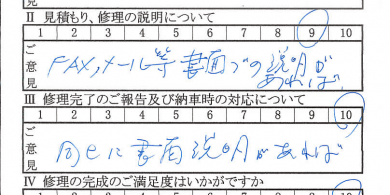 見
II 見積もり、修理の説明について
1 2 3 4 5 6 7 8 9 10
ご意見
FAX,メール等 書面での説明が
あれば
III 修理完了のご報告及び納車時の対応について
1 2 3 4 5 6 7 8 9 10
ご意見
同じに書面説明があれば
IV 修理の完成のご満足度はいかがですか
1 2 3 4 5 6 7 8 9 10